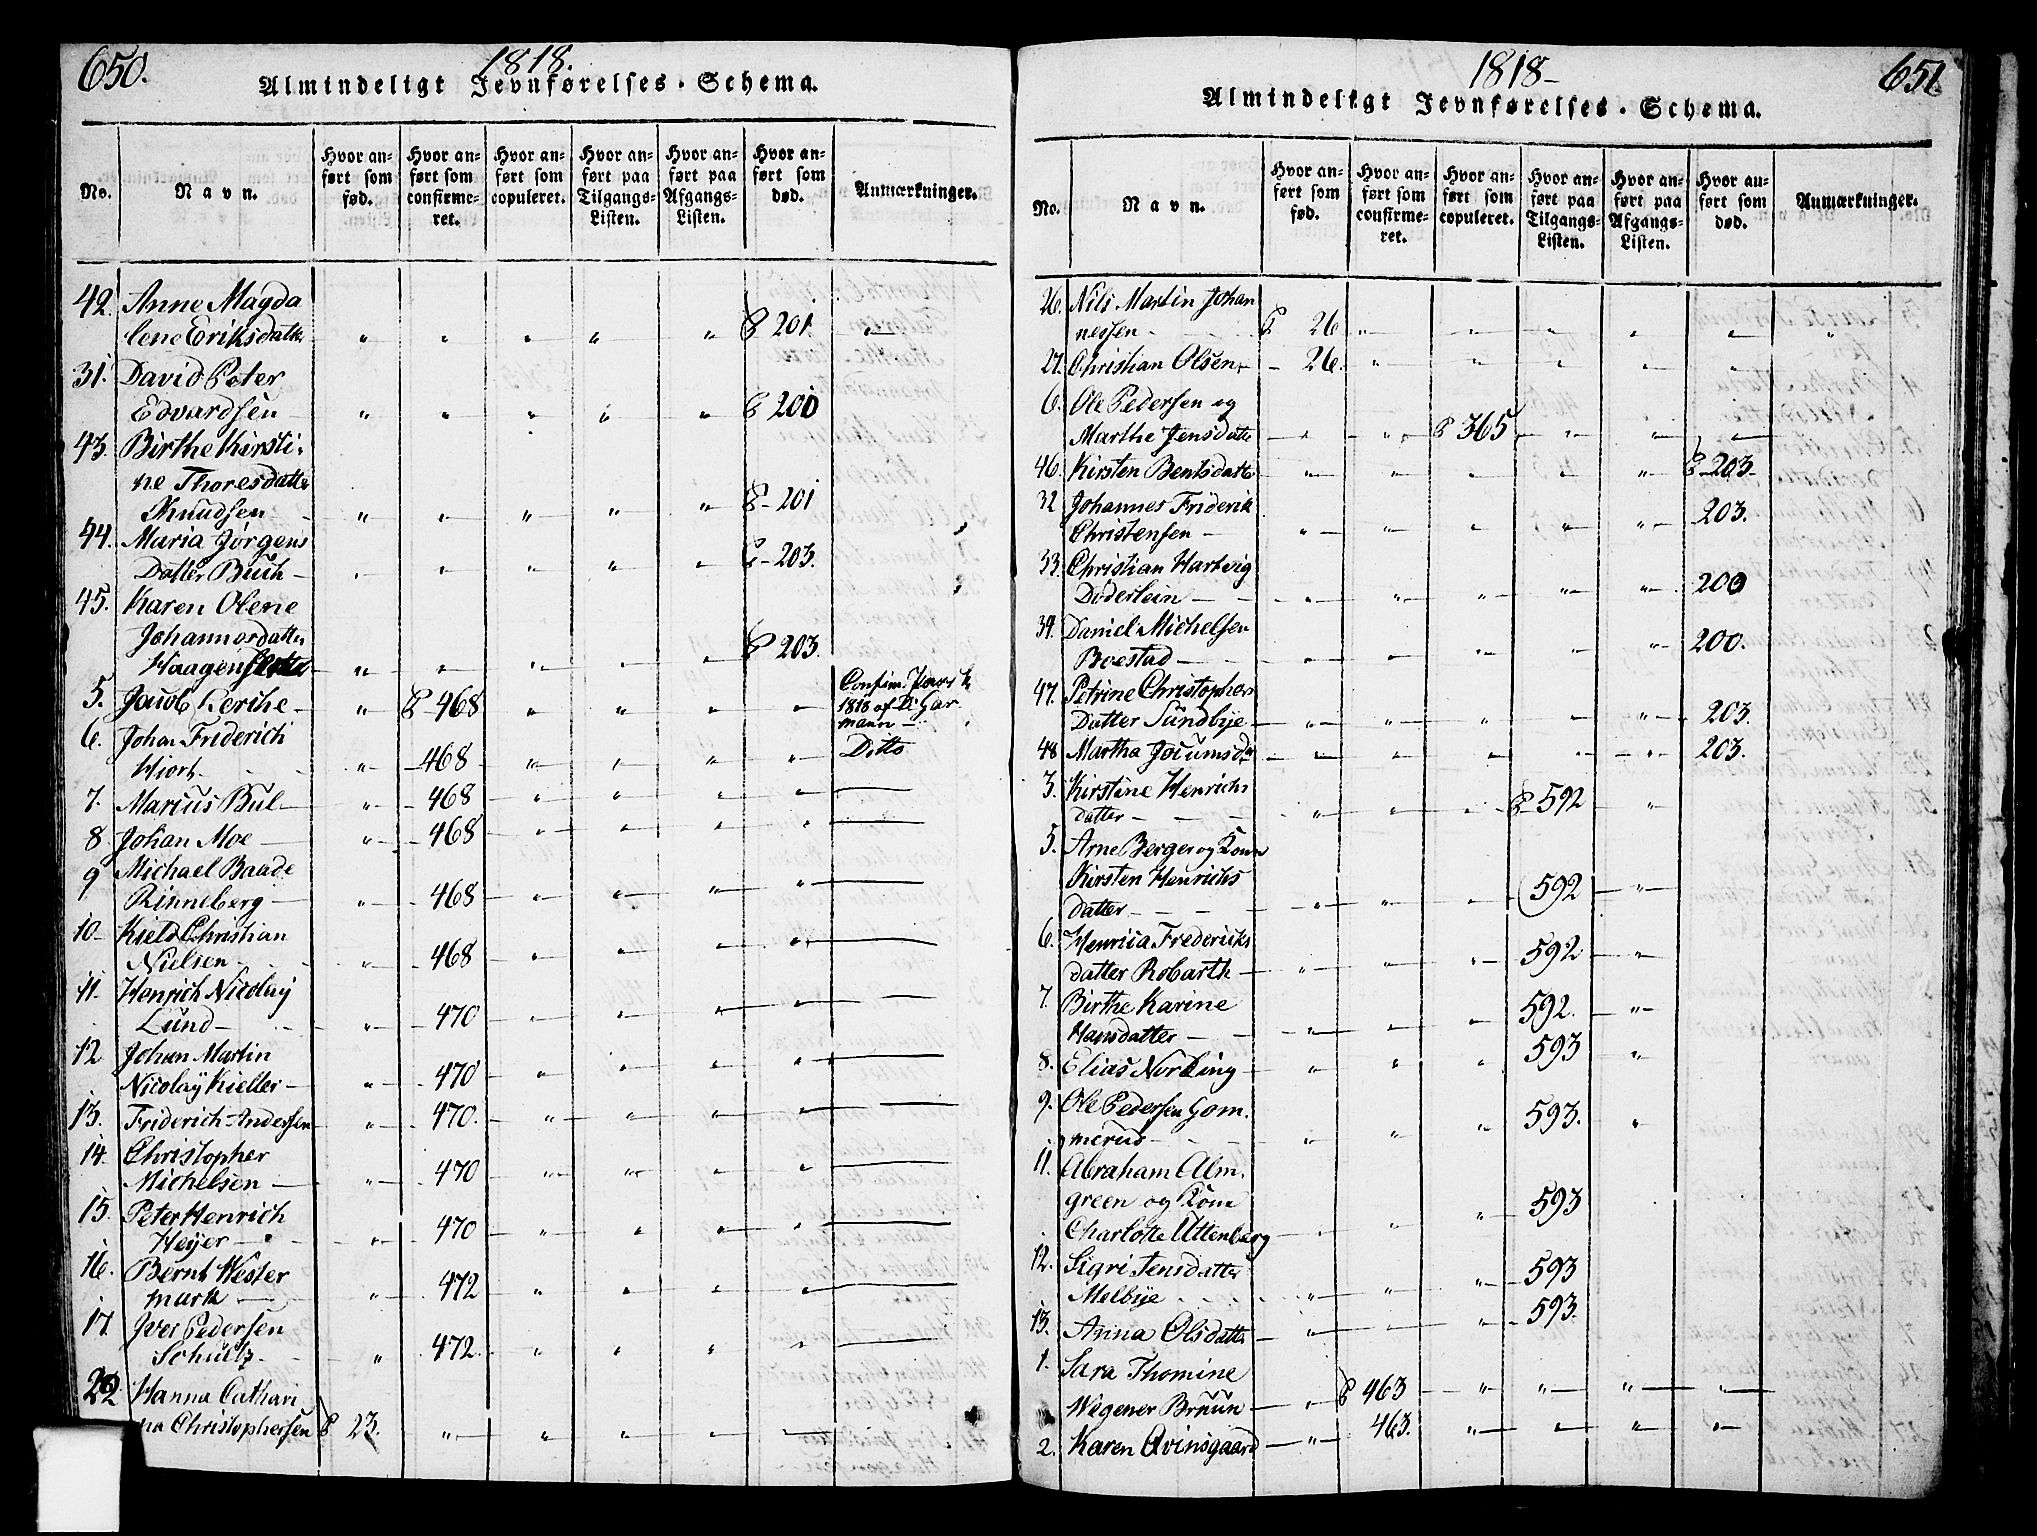 650.
1818.
Almindeligt Jevnførelses-Schema.
No.
Navn.
Hvor anført som fød.
Hvor anført som confirmeret.
Hvor anført som copuleret.
Hvor anført paa Tilgangs-Listen.
Hvor anført paa Afgangs-Listen.
Hvor anført som død.
Anmærkninger.
42. Anne Magda
lene Eriksdatter " " " " " 201
31. David Peter
Edvardsen " " " " " 200
43. Birthe Kirsti-
ne Thoresdatter
Knudsen " " " " " 201
44. Maria Jørgens
Datter Buch " " " " " 203.
45. Karen Olene
Johannesdatter
Haagen " " " " " 203.
5. Jacob Lerche " 468 " " " " 1818 af
6. Johan Friderich
Hiort " 468 " " " " Ditto
7. Marius Bul " 468 " " " "
8 Johan Moe " 468 " " " "
9 Michael Baade
Rinneberg " 468 " " " "
10 Kield Christian
Nielsen " 468 " " " "
11. Henrich Nicolay
Lund " 470 " " " "
12 Johan Martin
Nicolaÿ Kieller " 470 " " " "
13. Friderich Andersen " 470. " " " "
14. Christopher
Michelsen " 470 " " " "
15. Peter Henrich
Heyer " 470 " " " "
16. Bernt Wester
mark " 472 " " " "
17. Iver Pedersen
Schultz " 472. " " " "
22 Hanna Cathari
na Christophersen 23. " " " "
651.
1818
Almindeligt Jevnførelses-Schema.
No.
Navn.
Hvor anført som fød.
Hvor anført som confirmeret.
Hvor anført som copuleret.
Hvor anført paa Tilgangs-Listen.
Hvor anført paa Afgangs-Listen.
Hvor anført som død.
Anmærkninger.
26. Nils Martin Johan
nessen 26 " " " " " "
27. Christian Olsen 26. " " " " "
6. Ole Pedersen og
Marthe Jensdatter " " 365 " " "
46. Kirsten Bentsdatter " " " " " 203.
32 Johannes Friderik
Christensen " " " " " 203.
33. Christian Hartvig
Døderlein " " " " " 200
34. Daniel Michelsen
Boestad " " " " " 200.
47. Petrine Christophers
Datter Sundbye " " " " " 203.
48 Martha Jocumsdr " " " " " 203.
3. Kirstine Henrichs
datter " " " 592 "
5. Arne Berger og Kone
Kirsten Henrichs
datter " " " 592 "
6. Henrica Frederiks
datter Robarth " " " 592 "
7. Birthe Karine
Hansdatter " " " 592. "
8. Elias Norling " " " 593 "
9. Ole Pedersen Gom-
merud " " " 593. "
11. Abraham Alm-
green og Kone
Charlotte Uttenberg " " " 593
12. Sigri Jensdatter
Melbye " " " 593
13. Anna Olsdatter " " " 593.
1. Sara Thomine
Wegener Bruun " 463 " " " "
2. Karen Qvinsgaard " 463. " " " "